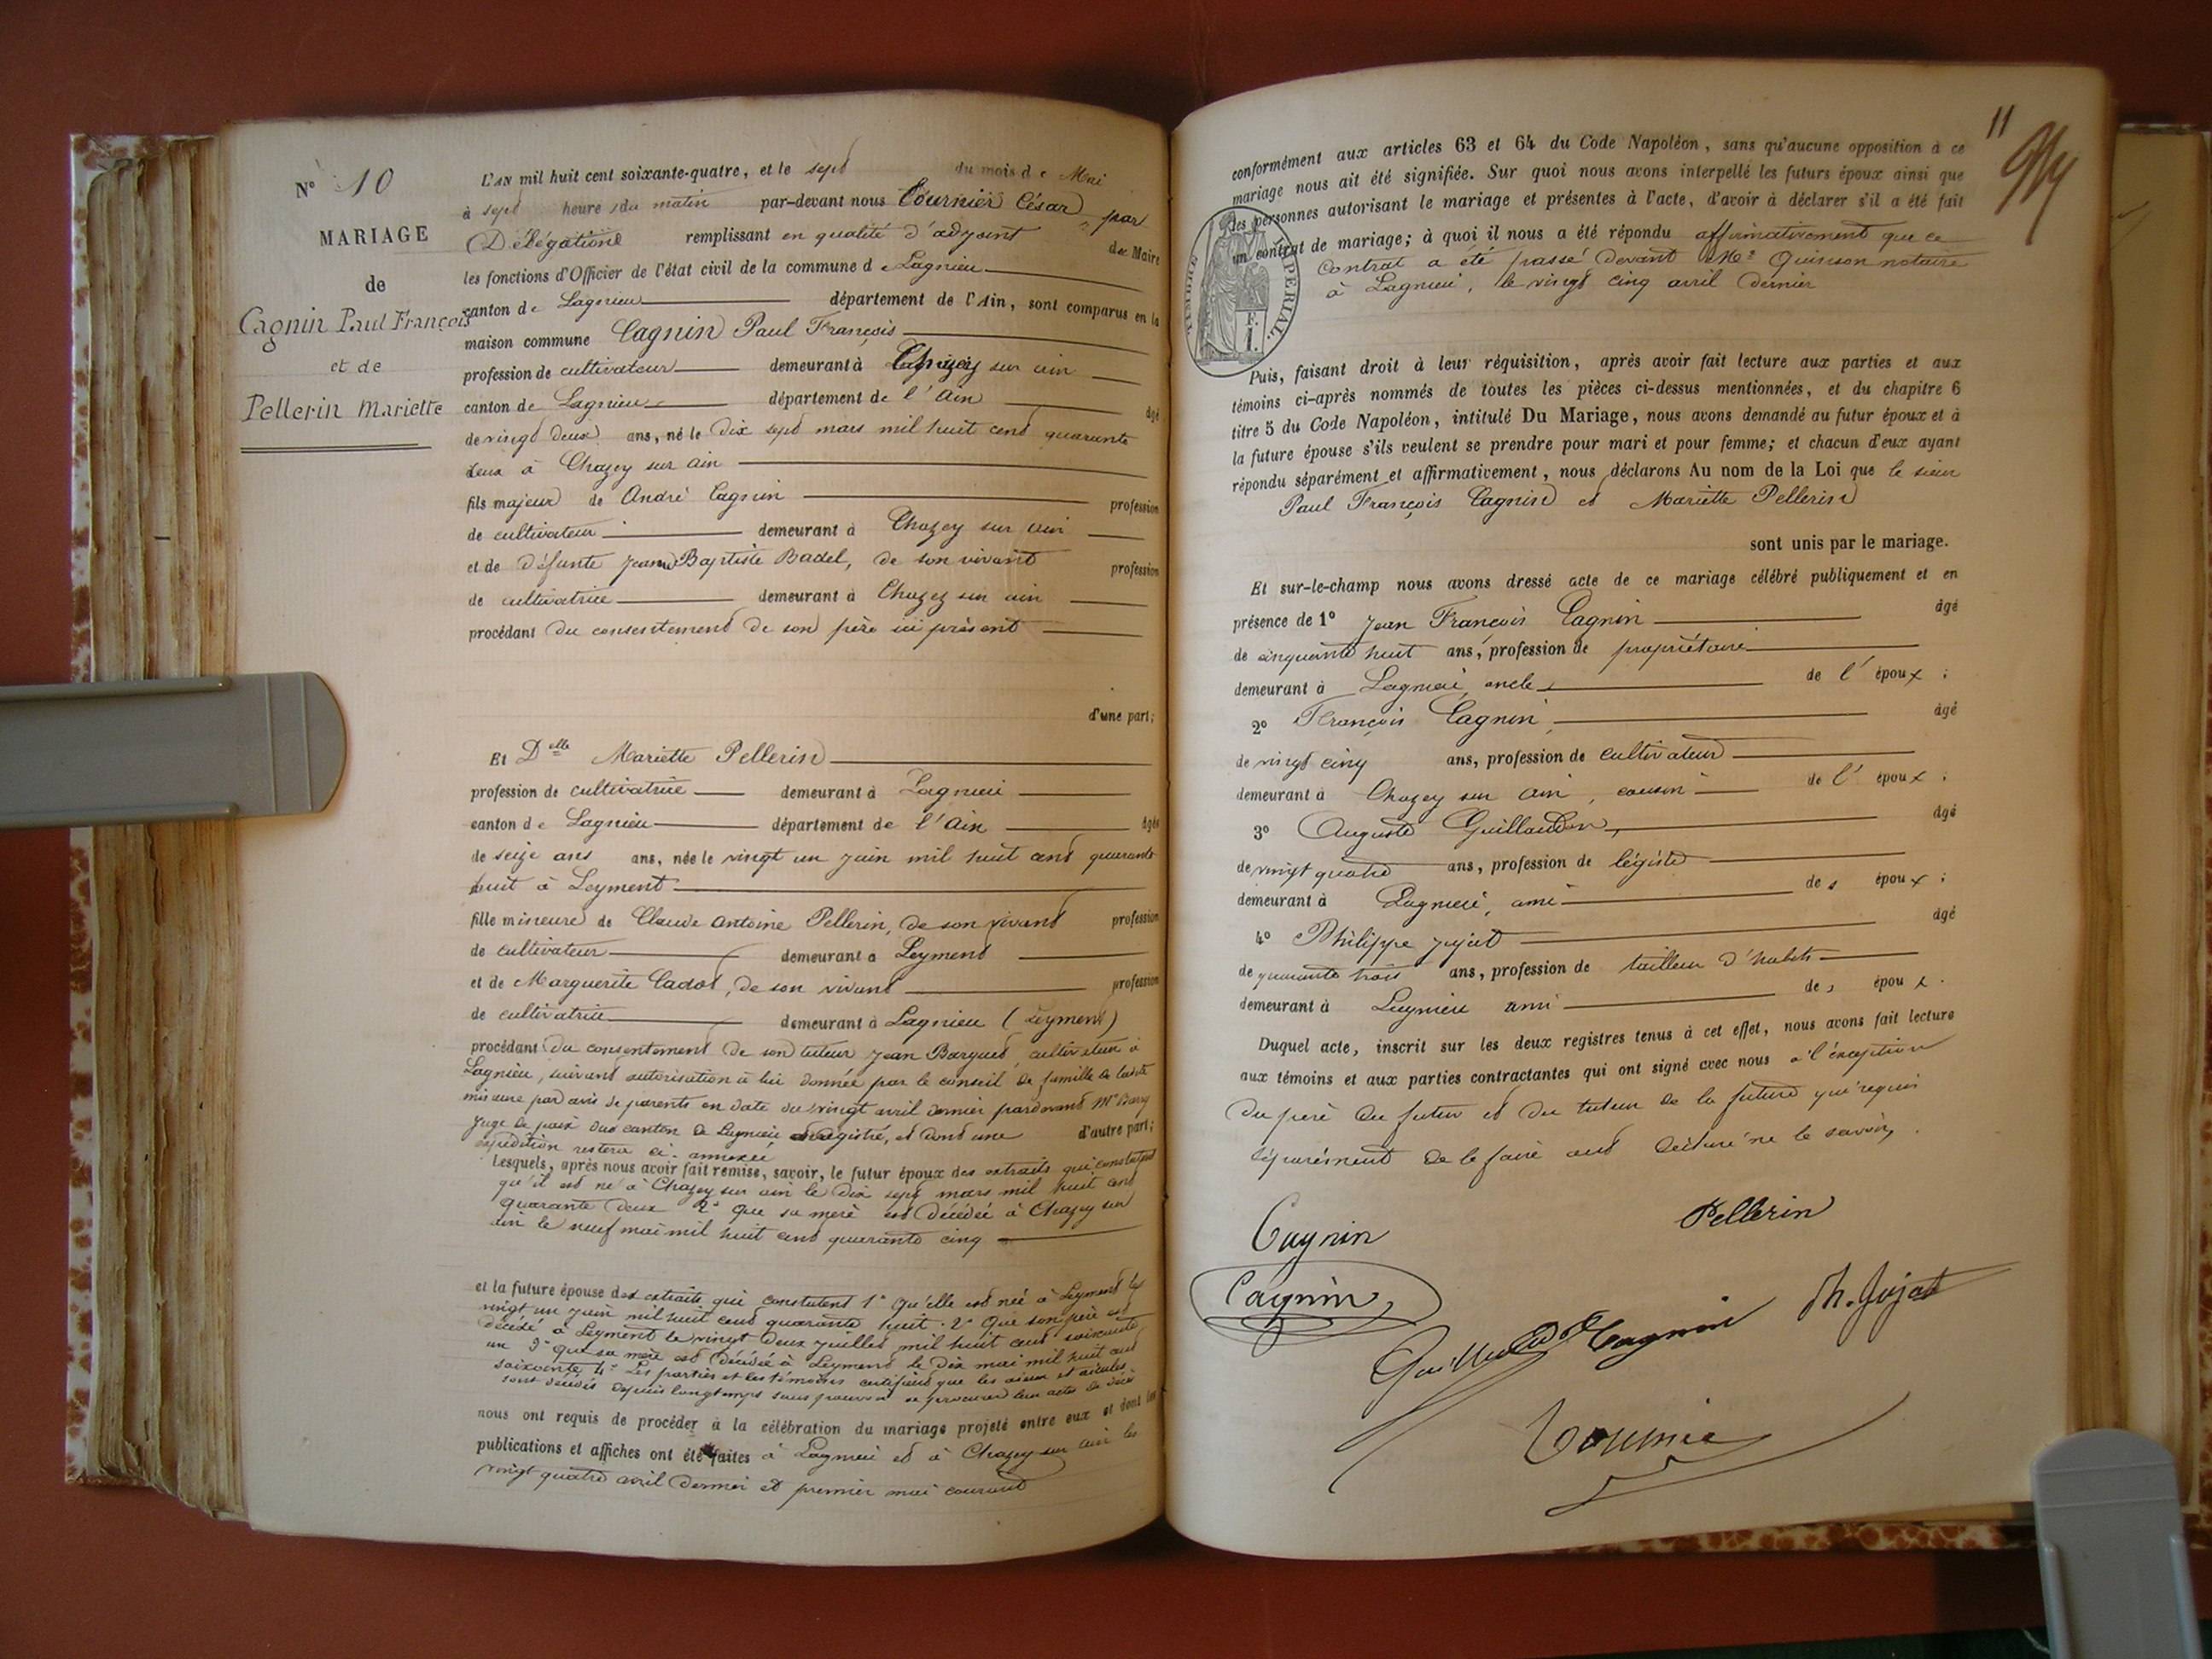 N° 10
MARIAGE
de
Cagnin Paul François
et de
Pellerin Mariette
L'AN mil huit cent soixante-quatre, et le sept du mois de Mai
à sept heures du matin par-devant nous Tournier César, par
Délégation remplissant en qualité d'adjoint de Maire
les fonctions d'Officier de l'état civil de la commune de Lagnieu
canton de Lagnieu département de l'Ain, sont comparus en la
maison commune Cagnin Paul François
profession de cultivateur demeurant à Chazey sur ain
canton de Lagnieu département de l'Ain âgé
de vingt deux ans, né le dix sept mars mil huit cent quarante
deux à Chazey sur ain
fils majeur de André Cagnin profession
de cultivateur demeurant à Chazey sur ain
et de défunte Jeanne Baptiste Badel, de son vivant profession
de cultivatrice demeurant à Chazey sur ain
procédant du consentement de son père ici présent
d'une part;
Et Delle Mariette Pellerin
profession de cultivatrice demeurant à Lagnieu
canton de Lagnieu département de l'Ain âgée
de seize ans ans, née le vingt un juin mil huit cent quarante
huit à Leyment
fille mineure de Claude Antoine Pellerin, de son vivant profession
de cultivateur demeurant à Leyment
et de Marguerite Cadot, de son vivant profession
de cultivatrice demeurant à Lagnieu (Leyment)
procédant du consentement de son tuteur Jean cultivateur à
Lagnieu, suivant autorisation à lui donnée par le conseil de famille de ladite
mineure par avis de parents en date du vingt avril dernier pardevant Mr
juge de paix du canton de Lagnieu enregistré, et dont une d'autre part;
expédition restera ci-annexée
Lesquels, après nous avoir fait remise, savoir, le futur époux des extraits qui constatent
qu'il est né à Chazey sur ain le dix sept mars mil huit cent
quarante deux 2° que sa mère est décédée à Chazey sur
ain le neuf mai mil huit cent quarante cinq
et la future épouse des extraits qui constatent 1° qu'elle est née à Leyment le
vingt un juin mil huit cent quarante huit. 2° Que son père est
décédé à Leyment le vingt deux juillet mil huit cent soixante
un 3° que sa mère est décédée à Leyment le dix mai mil huit cent
soixante 4° Les parties et les témoins certifient que les aïeux et aïeules
sont décédés depuis longtemps sans pouvoir se procurer leur actes de décès
nous ont requis de procéder à la célébration du mariage projeté entre eux et dont les
publications et affiches ont été faites à Lagnieu et à Chazey sur ain les
vingt quatre avril dernier et premier mai courant
11
conformément aux articles 63 et 64 du Code Napoléon, sans qu'aucune opposition à ce
mariage nous ait été signifiée. Sur quoi nous avons interpellé les futurs époux ainsi que
les personnes autorisant le mariage et présentes à l'acte, d'avoir à déclarer s'il a été fait
un contrat de mariage; à quoi il nous a été répondu affirmativement que ce
contrat a été passé devant Me Quinson notaire
à Lagnieu, le vingt cinq avril dernier
TIMBRE IMPÉRIAL.
F.
1.
Puis, faisant droit à leur réquisition, après avoir fait lecture aux parties et aux
témoins ci-après nommés de toutes les pièces ci-dessus mentionnées, et du chapitre 6
titre 5 du Code Napoléon, intitulé Du Mariage, nous avons demandé au futur époux et à
la future épouse s'ils veulent se prendre pour mari et pour femme; et chacun d'eux ayant
répondu séparément et affirmativement, nous déclarons Au nom de la Loi que le sieur
Paul François Cagnin et Mariette Pellerin
sont unis par le mariage.
Et sur-le-champ nous avons dressé acte de ce mariage célébré publiquement et en
présence de 1° Jean François Cagnin âgé
de cinquante huit ans, profession de propriétaire
demeurant à Lagnieu, oncle de l'époux;
2° François Cagnin, âgé
de vingt cinq ans, profession de cultivateur
demeurant à Chazey sur ain, cousin de l'époux;
3° Auguste âgé
de vingt quatre ans, profession de légiste
demeurant à Lagnieu, ami des époux;
4° Philippe Jujat âgé
de quarante trois ans, profession de tailleur d'habits
demeurant à Lagnieu ami des époux.
Duquel acte, inscrit sur les deux registres tenus à cet effet, nous avons fait lecture
aux témoins et aux parties contractantes qui ont signé avec nous à l'exception
du père du futur et du tuteur de la future qui requis
séparément de le faire ont déclaré ne le savoir.
Cagnin
Pellerin
Cagnin
Cagnin
Ph. Jujat
Tournier